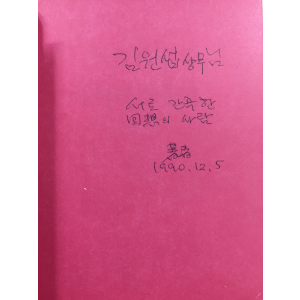 김원섭 상무님
서로 간곡한
回想의 사람
1990.12.5